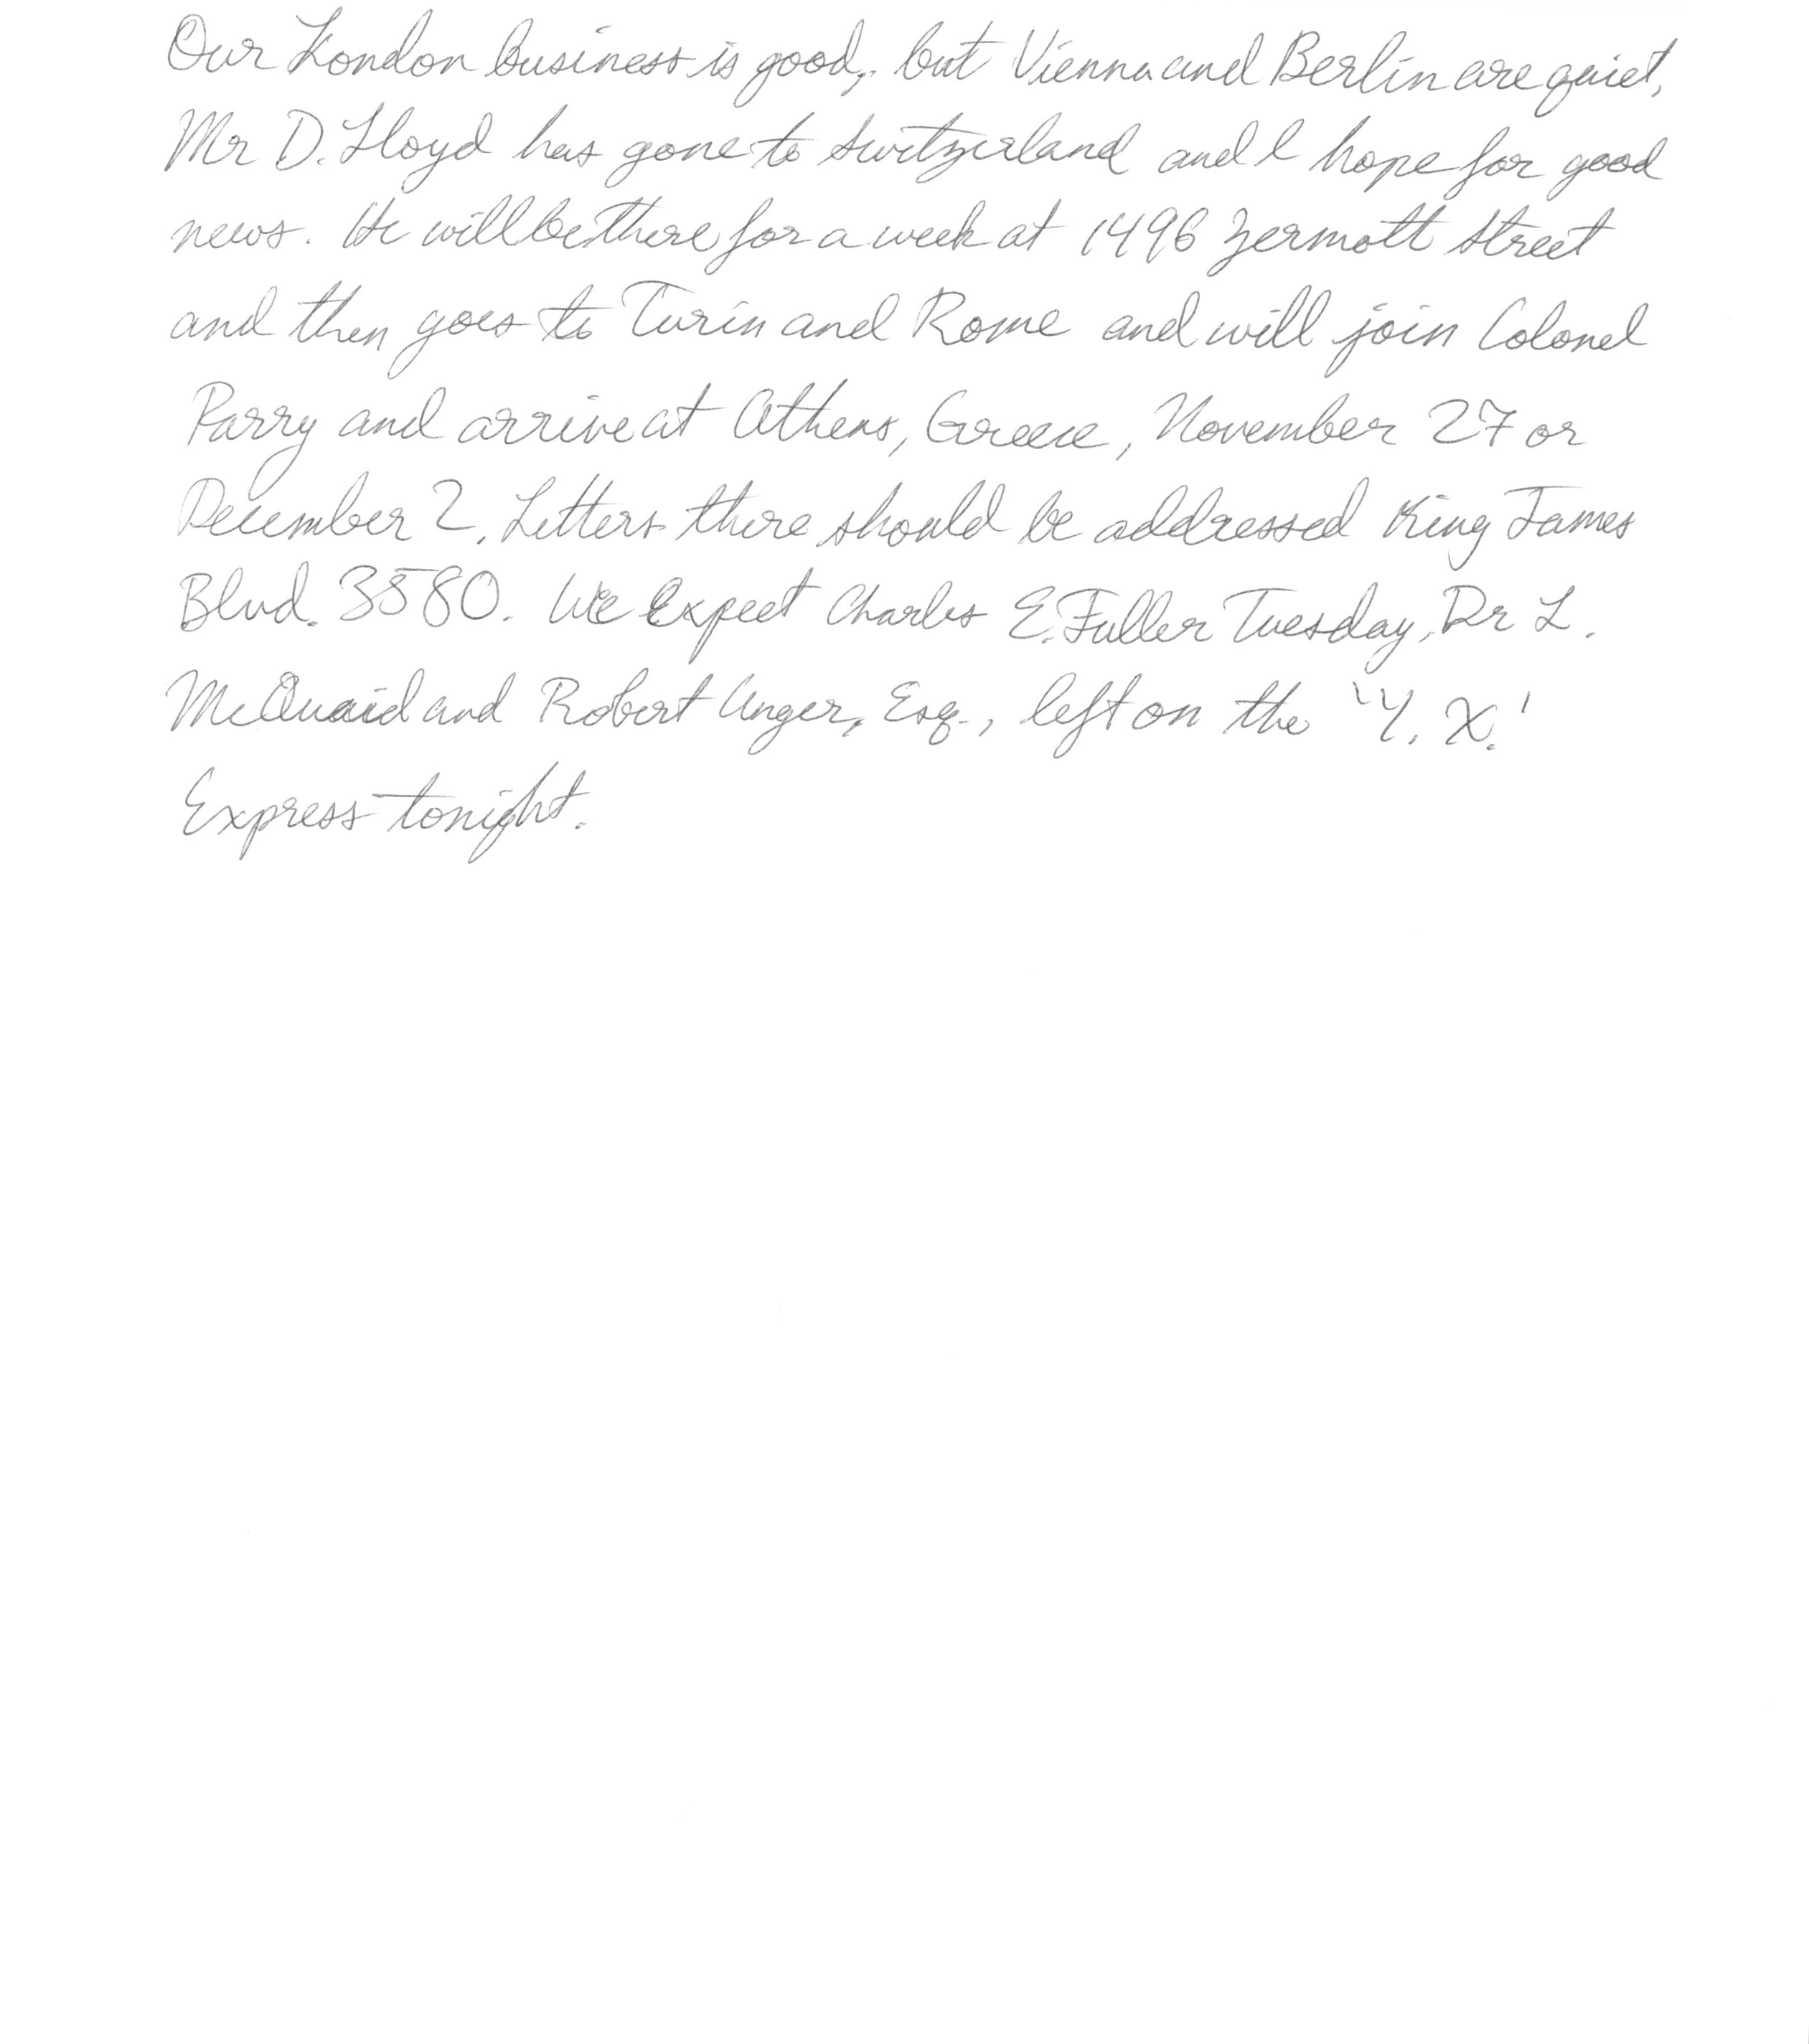 Our London business is good, but Vienna and Berlin are quiet,
Mr D. Lloyd has gone to Switzerland and I hope for good
news. He will be there for a week at 1496 Zermott Street
and then goes to Turin and Rome and will join Colonel
Parry and arrive at Athens, Greece, November 27 or
December 2. Letters there should be addressed King James
Blvd. 3580. We Expect Charles E. Fuller Tuesday, Dr L.
McQuaid and Robert Unger, Esq., left on the 'Y. X.'
Express tonight.